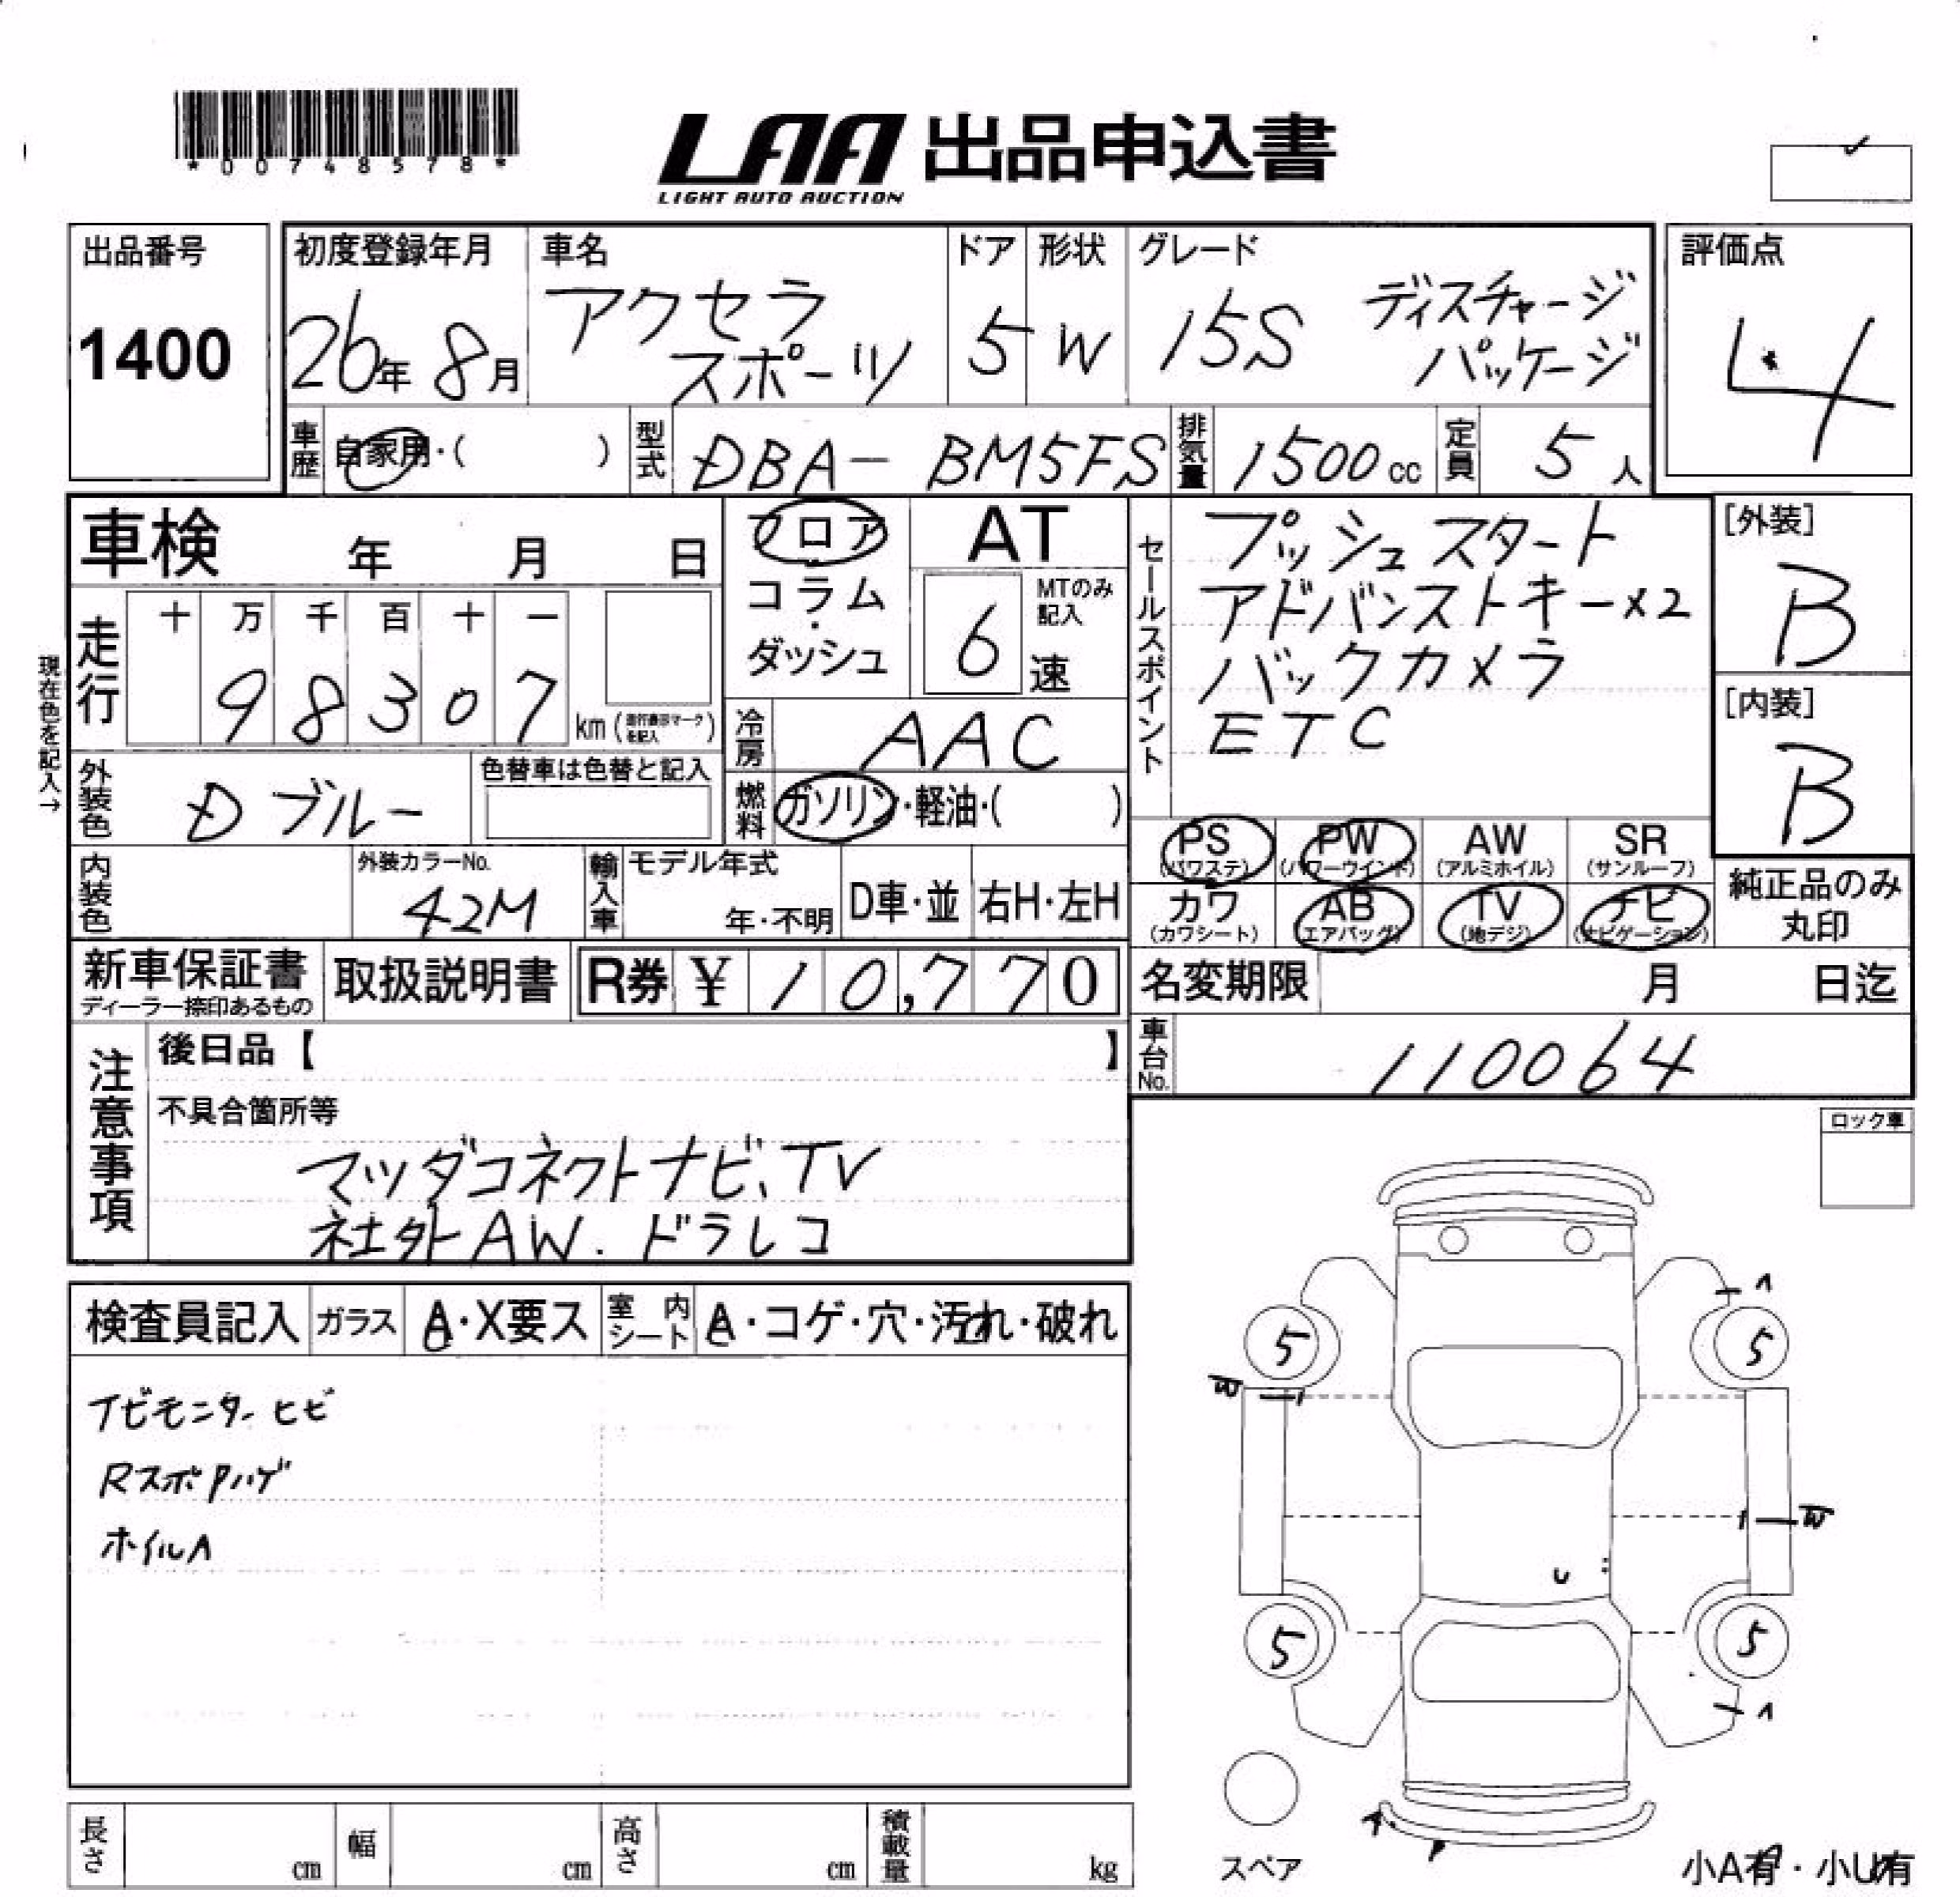 *00748578*
LAA 出品申込書
LIGHT AUTO AUCTION
出品番号
1400
初度登録年月
26年 8月
車名
アクセラ
スポーツ
ドア
5
形状
W
グレード
15S ディスチャージ
パッケージ
評価点
4
車歴 自家用・( )
型式 DBA- BM5FS
排気量 1500cc
定員 5人
車検 年 月 日
フロア
コラム
・
ダッシュ
AT
6速
MTのみ
記入
セールスポイント
プッシュスタート
アドバンストキー×2
バックカメラ
ETC
[外装]
B
[内装]
B
現在色を記入→
走行
十 万 千 百 十 一
9 8 3 0 7
km (走行表示マークを記入)
冷房 AAC
外装色 Dブルー
色替車は色替と記入
燃料 ガソリン・軽油・( )
PS
(パワステ)
PW
(パワーウインド)
AW
(アルミホイル)
SR
(サンルーフ)
カワ
(カワシート)
AB
(エアバッグ)
TV
(地デジ)
ナビ
(ナビゲーション)
純正品のみ
丸印
内装色
外装カラーNo.
42M
輸入車
モデル年式
年・不明
D車・並
右H・左H
新車保証書
ディーラー捺印あるもの
取扱説明書
R券 ¥ 10,770
名変期限 月 日迄
車台No. 110064
注意事項
後日品【 】
不具合箇所等
マツダコネクトナビ、TV
社外AW.ドラレコ
ロック車
検査員記入
ガラス A・X要ス
室内シート A・コゲ・穴・汚れ・破れ
ナビモニターヒビ
RスポPハゲ
ホイルA
5
5
W
W
U
5
5
スペア
小A有・小U有
長さ cm
幅 cm
高さ cm
積載量 kg